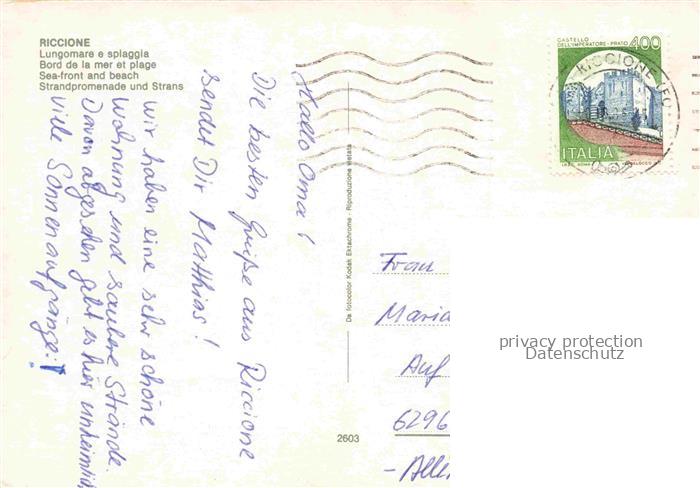 RICCIONE
Lungomare e spiaggia
Bord de la mer et plage
Sea-front and beach
Strandpromenade und Strans
Hallo Oma!
Die besten Grüße aus Riccione
sendet Dir Matthias!
Wir haben eine sehr schöne
Wohnung und saubere Strände.
Davon abgesehen gibt es hier unheimlich
viele Sonnenaufgänge!
Da fotocolor Kodak Ektachrome - Riproduzione vietata
2603
CASTELLO
DELL'IMPERATORE - PRATO 400
RICCIONE
ITALIA
Frau
Maria
Auf
6296
privacy protection
Datenschutz